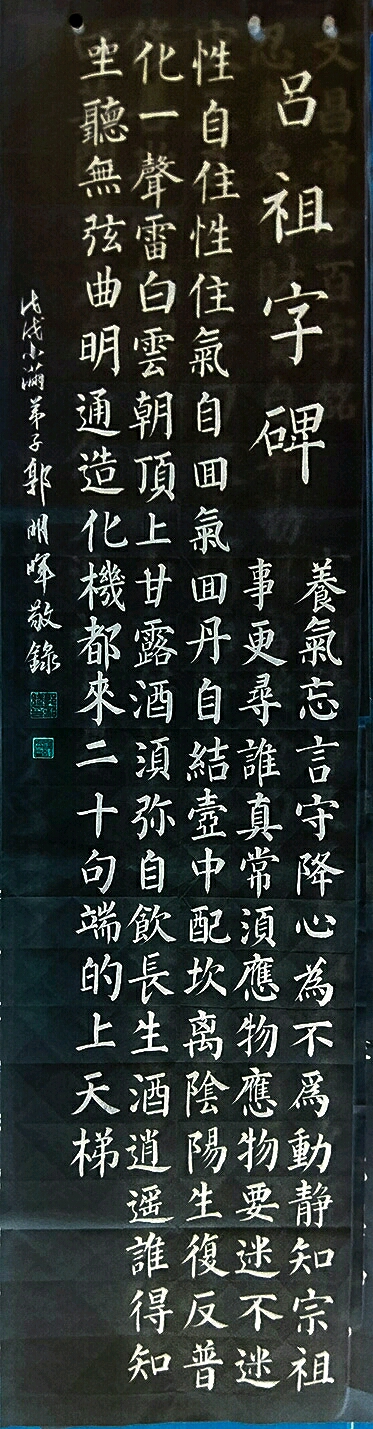 呂祖字碑
養氣忘言守降心為不爲動靜知宗祖
事更尋誰真常湏應物應物要迷不迷
性自住性住氣自囬氣囬丹自結壺中配坎离陰陽生復反普
化一聲雷白雲朝頂上甘露酒湏弥自飲長生酒逍遥誰得知
坐聽無弦曲明通造化機都來二十句端的上天梯
戊戌小滿弟子郭明暉敬錄